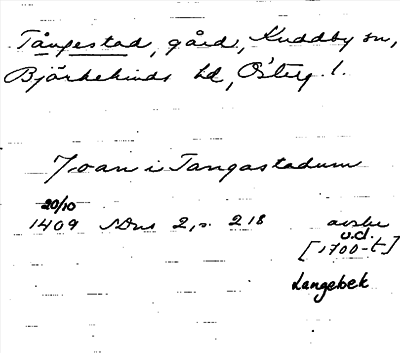 Tångestad, gård, Kuddby sn,
Björkekinds hd, Österg. l.
Joan i Tangastadum
20/10
1409 SDns 2, s. 218 avskr
u.d.
[1700-t]
Langebek